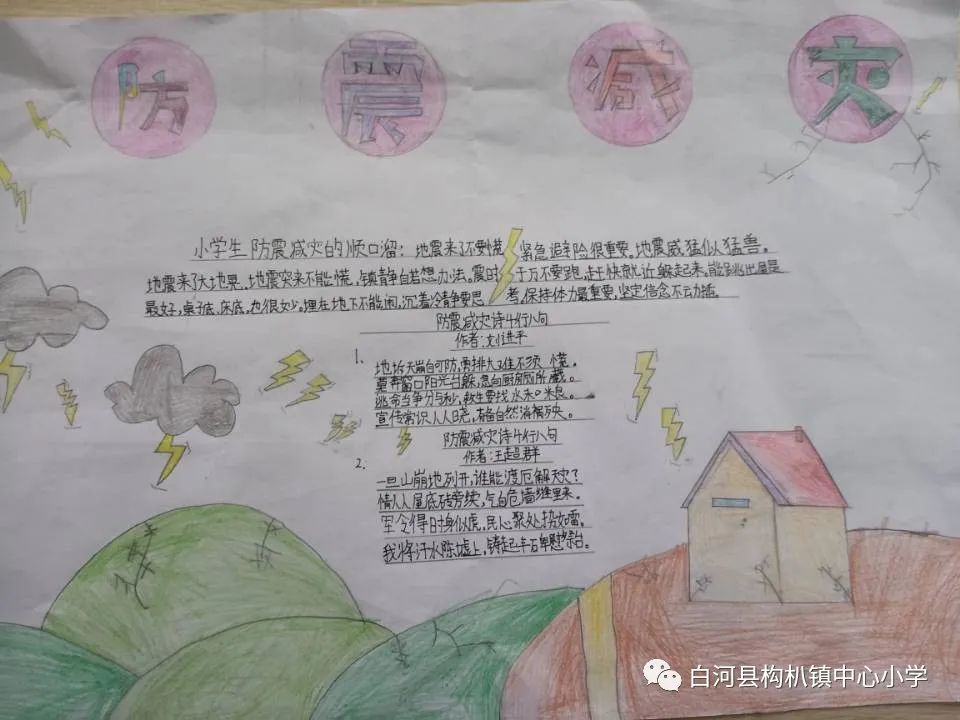 防震减灾
小学生防震减灾的顺口溜：地震来了不要慌 紧急避险很重要。地震威猛似猛兽。
地震来了大地晃，地震突来不能慌，镇静自若想办法。震时 千万不要跑，赶快就近躲起来，能够逃出屋是
最好，桌子底、床底、也很妙。埋在地下不能闹，沉着冷静要思 考，保持体力最重要，坚定信念不动摇。
防震减灾诗4行八句
作者：刘进平
1、
地坼天崩自可防，排大难不须慌。
莫奔窗口阳台躲，急向厨房厕所藏。
逃命当争分与秒，救生要找水和粮。
宣传常识人人晓，自然消祸殃。
防震减灾诗4行八句
作者：王超群
2、
一旦山崩地列开，谁能渡厄解天灾？
情人人屋底砖旁续，气自危墙缝里来。
军令得时身似虎，民心聚处势如雷。
我将汗水陈墟上，铸起丰石卑慰台。
白河县构朳镇中心小学